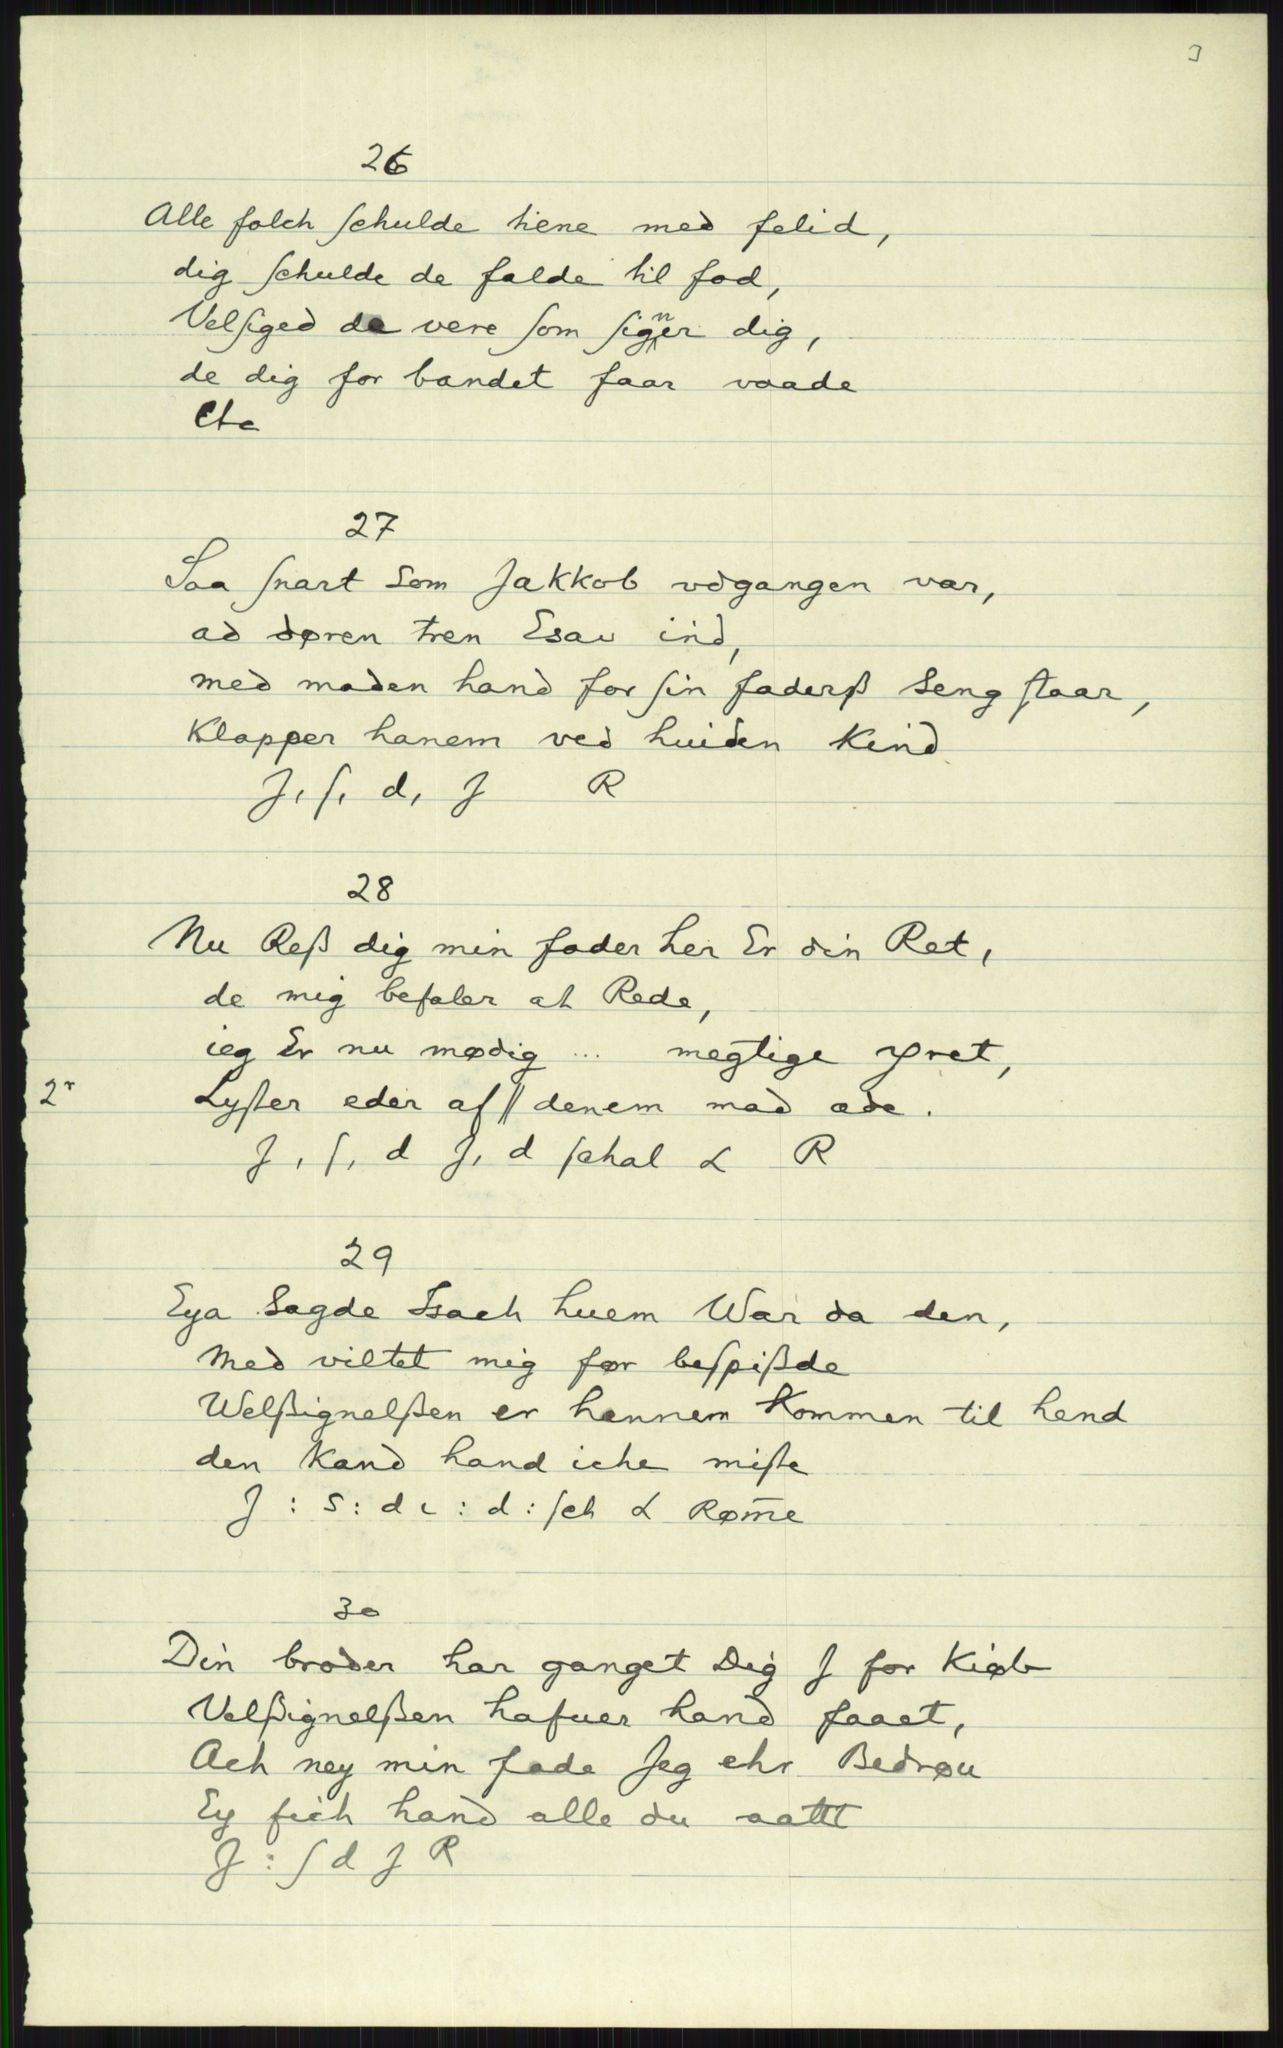 3
26
Alle folch schulde tiene med felid,
dig schulde de falde til fod,
Velsged de vere som signer dig,
de dig for bandet faar vaade
Etc
27
Saa snart som Jakkob vdgangen var,
ad døren tren Esau ind,
med maden hand for sin faderß seng staar,
Klapper hanem ved huiden Kind
J, s, d, J R
28
Nu Reß dig min fader her Er din Ret,
de mig befaler at Rede,
ieg Er nu mødig ... megtige yret,
2r Lyster eder af || denem mad æde.
J, s, d J, d schal L R
29
Eya Sagde Isach huem War da den,
Med viltet mig før bespißde
Welßignelßen er hannem Kommen til hend
den Kand hand iche miste
J : s : d c : d : sch L Røm̅e
30
Din broder har ganget Dig J for Kiøb
Velßignelßen hafuer hand faaet,
Ach ney min fade Jeg ehr Bedrøu
Ey fich hand alle du aattt
J : s d J R